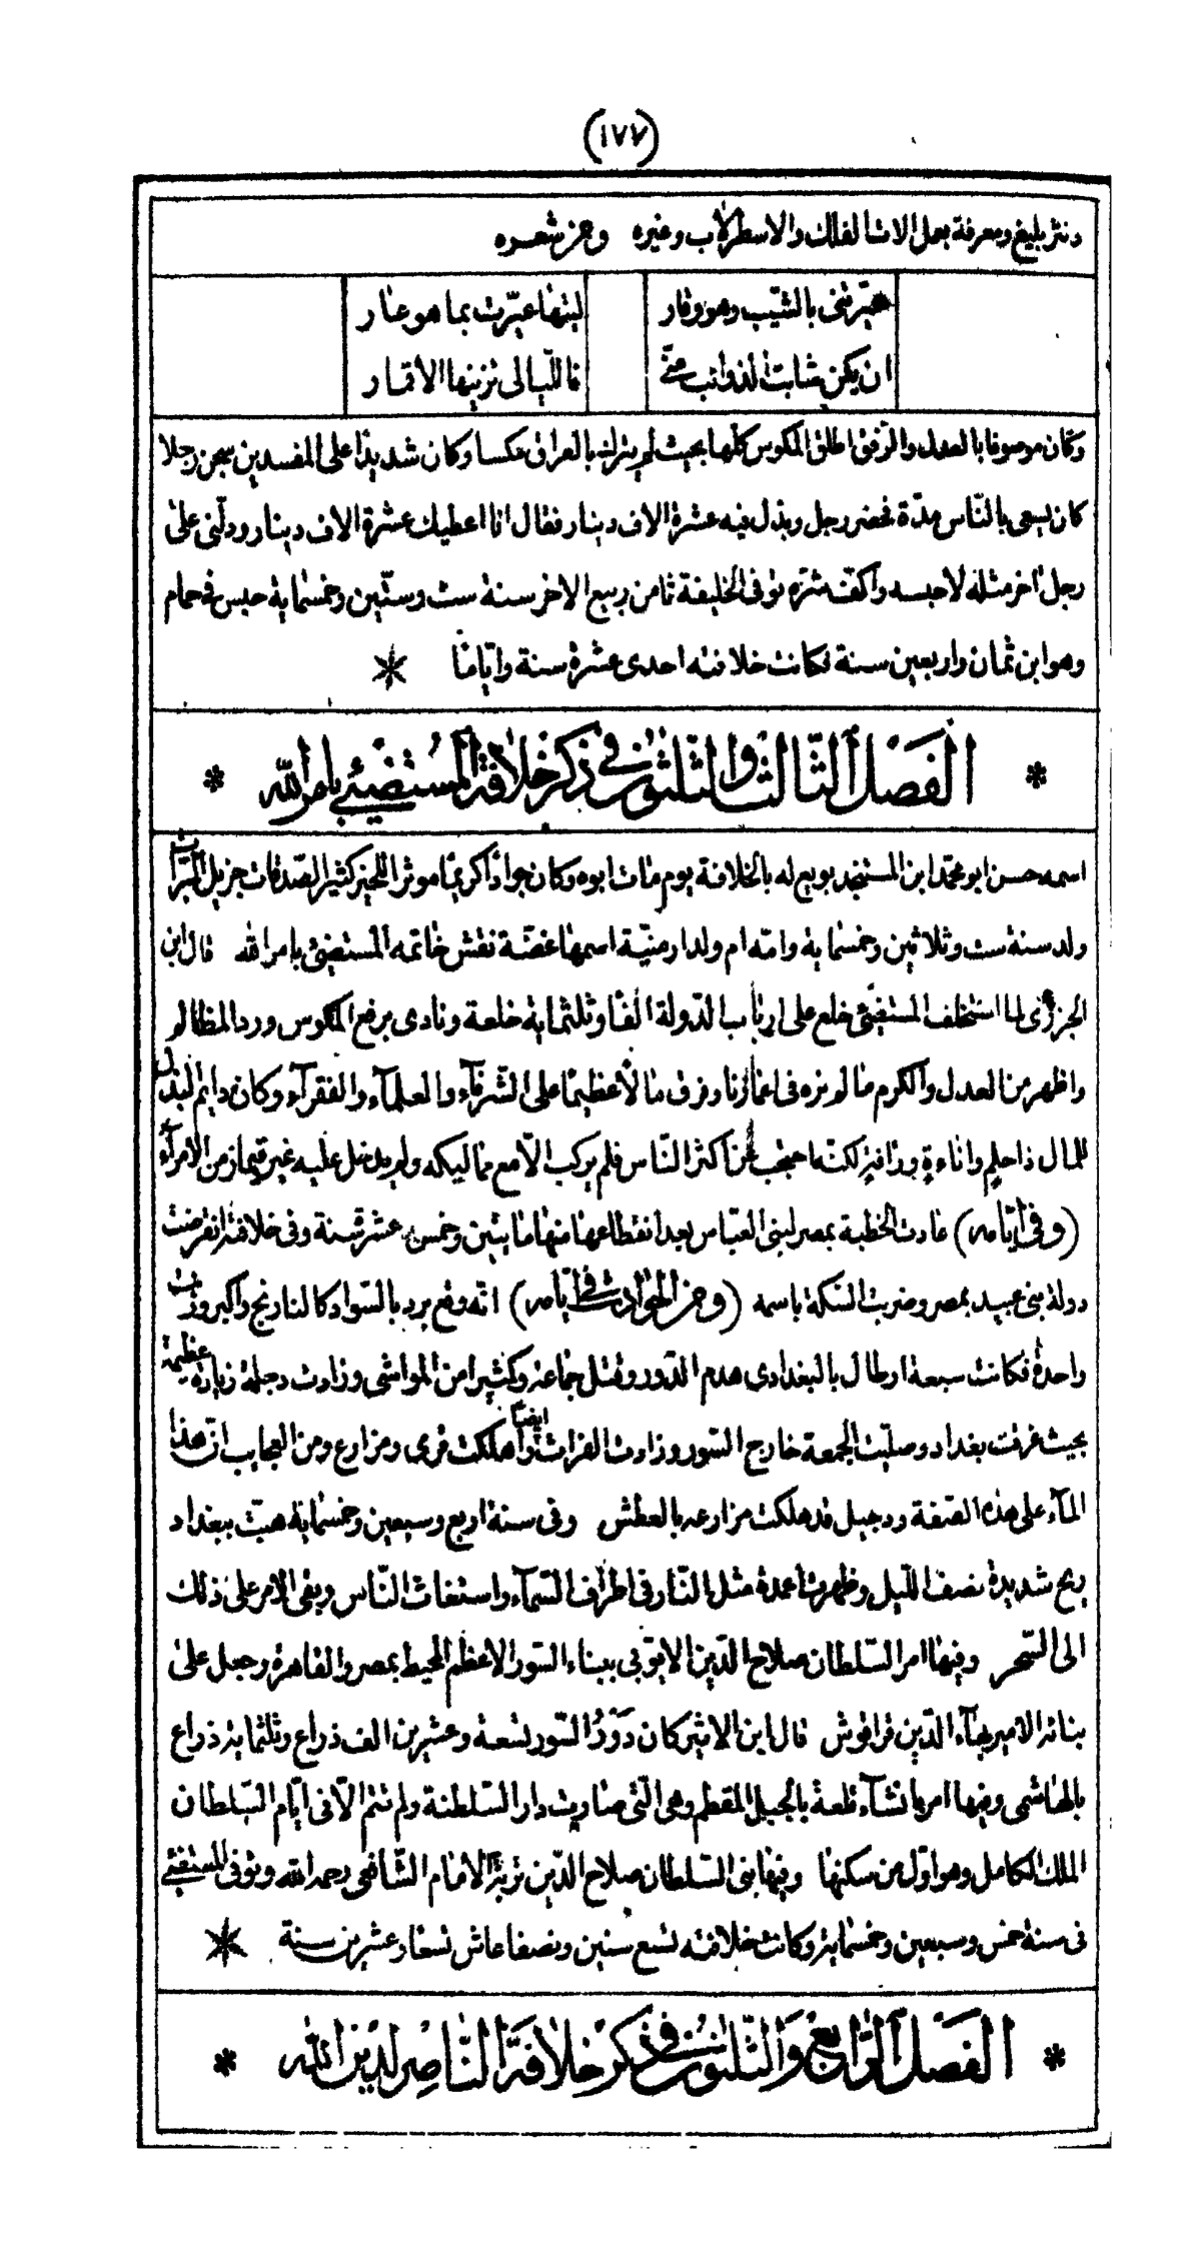 (١٧٧)
ونثر بليغ ومعرفة بعمل الات الفلك والاسطرلاب وغيره ومن شعره
عيّرتني بالشّيب وهو وقار ليتها عيّرت بما هو عار
ان يكن شابت الذوائب منّي فالليالي تزينها الاقمار
وكان موصوفا بالعدل والرّفق اطلق المكوس كلّها بحيث لم يترك بالعراق مكسا وكان شديدًا على المفسدين سجن رجلا
كان يسعى بالنّاس مدّة فحضر رجل وبذل فيه عشرة الاف دينار فقال انا اعطيك عشرة الاف دينار ودلّني على
رجل اخر مثله لاحبسه واكف شرّه توفى الخليفة ثامن ربيع الاخر سنة ست وستّين وخمسماية حبس في حمام
وهو ابن ثمان واربعين سنة فكانت خلافته احدى عشرة سنة وايّامًا *
* الفصل الثّالث والثّلثون في ذكر خلافة المستضيئ بامر الله *
اسمه حسن ابو محمّد ابن المستنجد بويع له بالخلافة يوم مات ابوه وكان جوادًا كريمًا موثرا للخير كثير الصّدقات جزيل المبرّات
ولد سنة ست وثلاثين وخمسماية وامّه ام ولد ارمنيّة اسمها غضّة نقش خاتمه المستضئ بامر الله قال ابن
الجوزى لما استخلف المستضئ خلع على ارباب الدّولة الفًا وثلثماية خلعة ونادى برفع المكوس ورد المظالم
واظهر من العدل والكرم ما لم نره في اعمارنا وفرق مالًا عظيمًا على الشّرفآء والعلمآء والفقرآء وكان دايم البذل
للمال ذا حلم واناءة ورافة لكنّه احتجب عن اكثر النّاس فلم يركب الّا مع مماليكه ولم يدخل عليه غير قيماز من الامرآء
(وفي ايّامه) عادت الخطبة بمصر لبني العبّاس بعد انقطاعها منها مايتين وخمس عشرة سنة وفي خلافته انقرضت
دولة بني عبيد بمصر وضربت السّكة باسمه (ومن الحوادث في ايّامه) انّه وقع برد بالسّواد كالنارنج واكبر وزنت
واحدة فكانت سبعة ارطال بالبغدادى هدم الدّور وقتل جماعة وكثيرا من المواشى وزادت دجلة زيادة عظيمة
بحيث غرقت بغداد وصليت الجمعة خارج السّور وزادت الفرات ايضًا واهلكت قرى ومزارع ومن العجايب انّ هذا
المآء على هذه الصّفة ودجيل قد هلكت مزارعه بالعطش وفي سنة اربع وسبعين وخمسماية هبت ببغداد
ريح شديدة نصف اللّيل وظهرت اعمدة مثل النّار في اطراف السّمآء واستغاث النّاس وبقى الامر على ذلك
الى السّحر وفيها امر السّلطان صلاح الدّين الايّوبي ببناء السّور الاعظم المحيط بمصر والقاهرة وجعل على
بنائه الامير بهآء الدّين قراقوش قال ابن الاثير كان دَوْرُ السّور تسعة وعشرين الف ذراع وثلثماية ذراع
بالهاشمى وفيها امر بانشآء قلعة بالجبل المقطم وهى الّتى صارت دار السّلطنة ولم تتم الّا في ايّام السّلطان
الملك الكامل وهو اوّل من سكنها وفيها بنى السّلطان صلاح الدّين تربة الامام الشّافعى رحمه الله وتوفى المستضئ
في سنة خمس وسبعين وخمسماية وكانت خلافته تسع سنين ونصفا عاش تسعًا وعشرين سنة *
* الفصل الرّابع والثّلثون في ذكر خلافة النّاصر لدين الله *